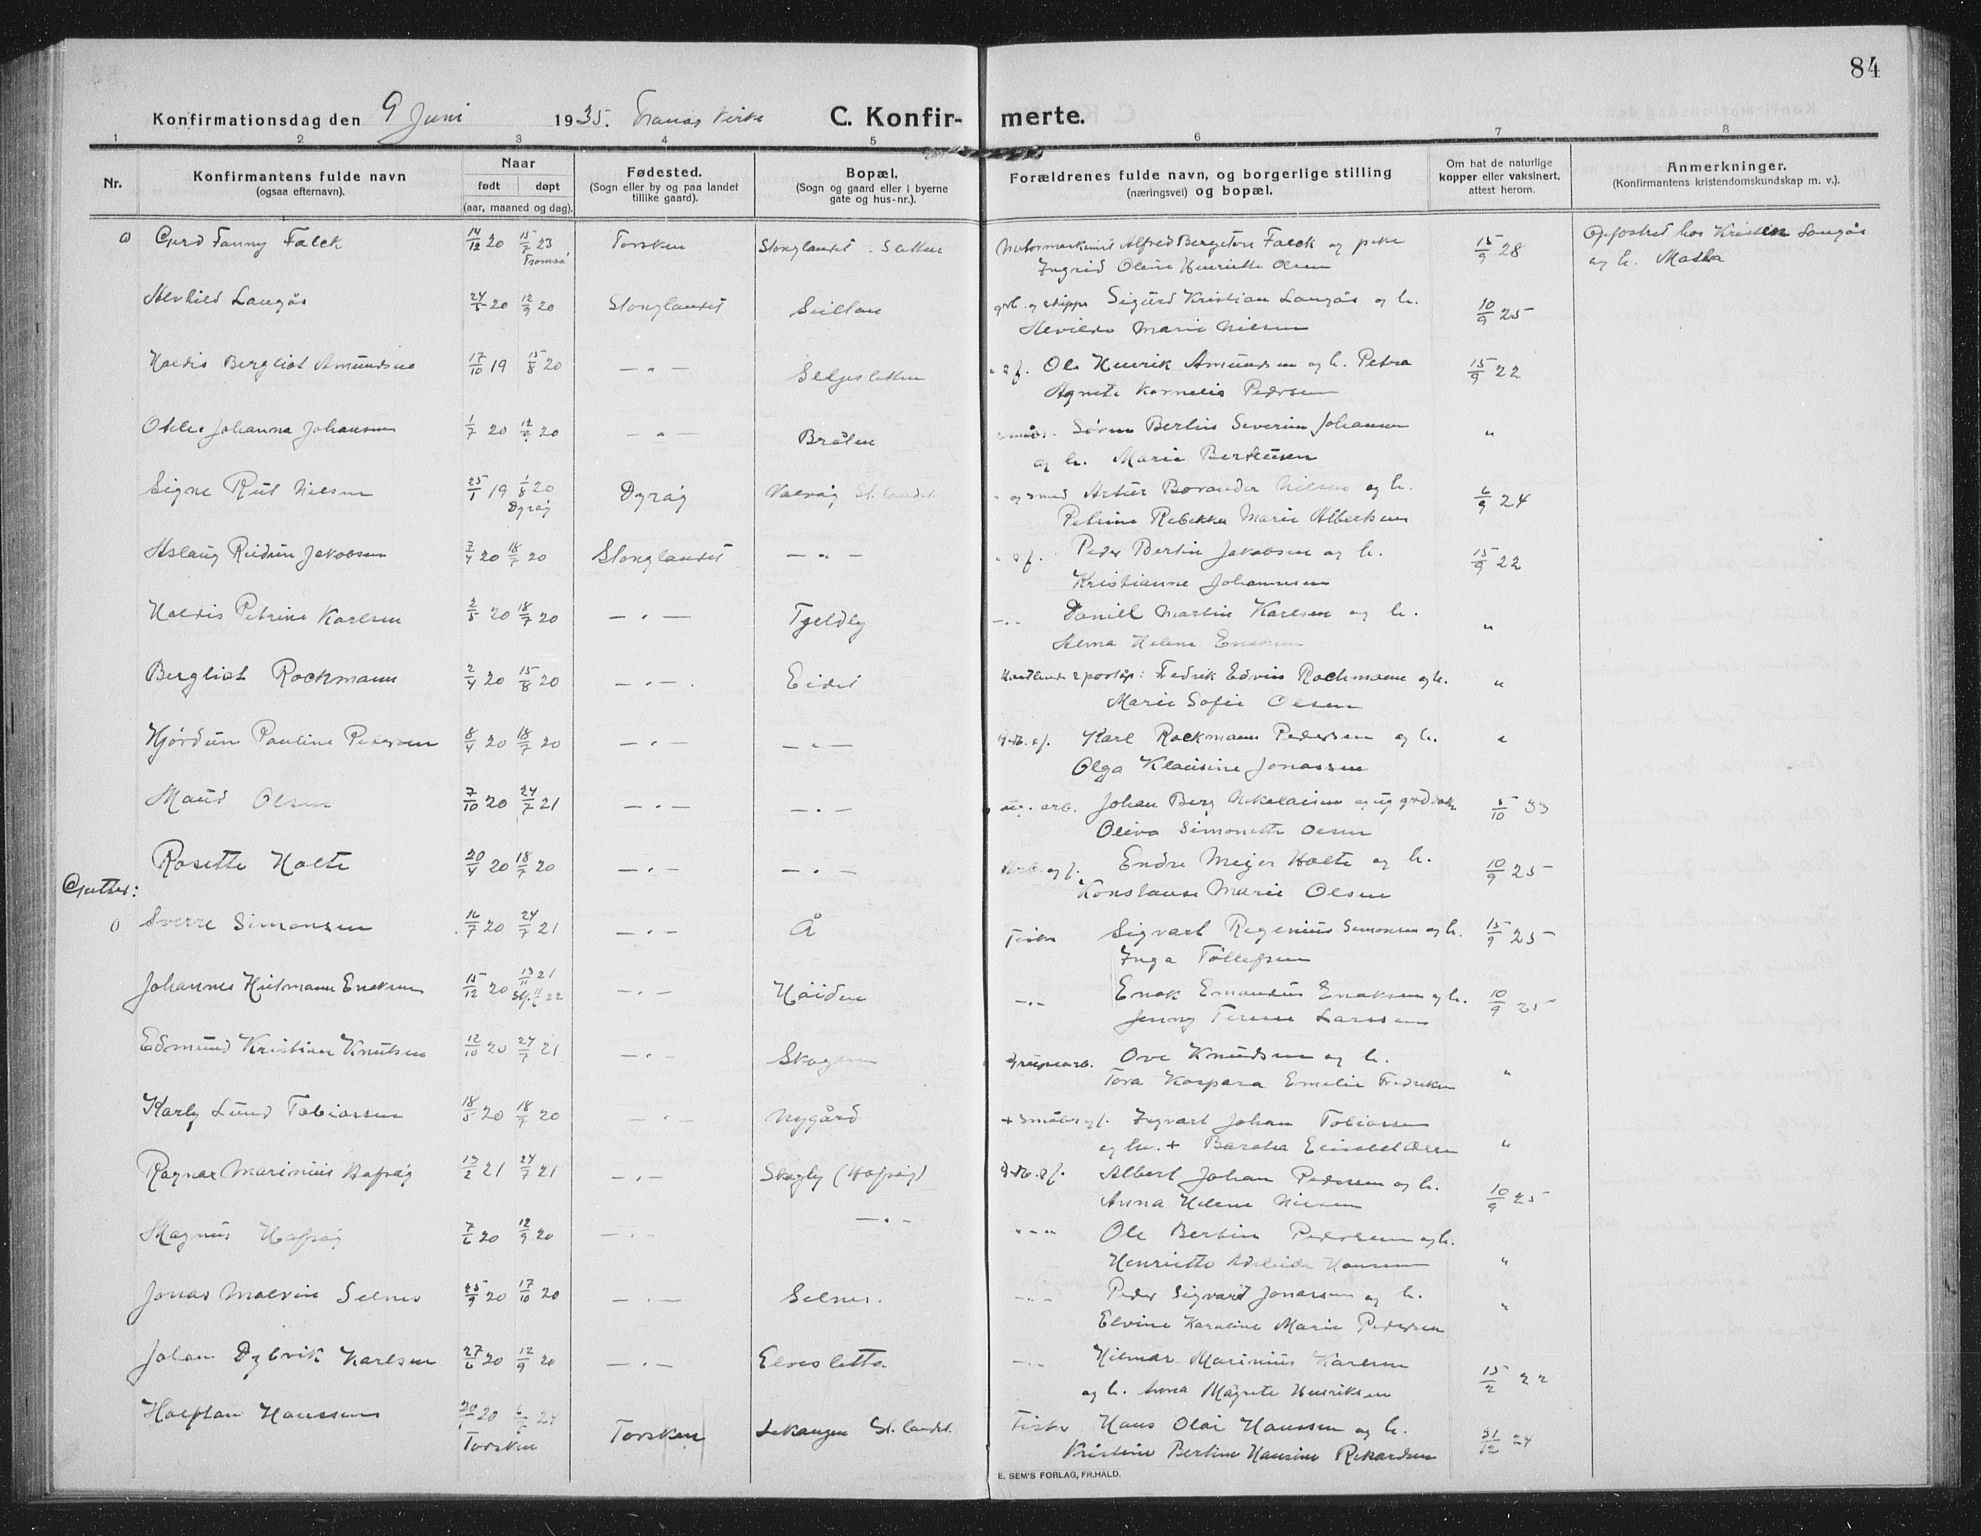 84
Konfirmationsdag den 9 Juni 1935. Tranøy kirke C. Konfirmerte.
1 2 3 4 5 6 7 8
Nr.
Konfirmantens fulde navn
(ogsaa efternavn).
Naar
født døpt
(aar, maaned og dag).
Fødested.
(Sogn eller by og paa landet
tillike gaard).
Bopæl.
(Sogn og gaard eller i byerne
gate og hus-nr.).
Forældrenes fulde navn, og borgerlige stilling
(næringsvei) og bopæl.
Om hat de naturlige
kopper eller vaksinert,
attest herom.
Anmerkninger.
(Konfirmantens kristendomskundskap m. v.).
Gerd Fanny Falck 14/12 20 15/7 23 Torsken Stonglandet Alfred Falck og pike 15/9 28 Opfostret hos Kristen Langås
Tromsø Ingrid Oline Henriette Olsen og h.
Alvhild Langås 24/5 20 12/9 20 Stonglandet Sigurd Kristian Langås og h. 10/9 25
Marie Nilsen
Haldis Bergliot Amundsen 17/10 19 15/8 20 — " — Ole Henrik Amundsen og h. Petra 15/9 22
Agnete Kornelia Pedersen
Johanna Johansen 1/7 20 12/9 20 — " — Bråten Søren Bertin Severin Johansen "
og h. Marie Berteusen
Signe Rut Nilsen 25/1 19 1/8 20 Dyrøy Valvåg St.landet Artur Nilsen og h. 6/9 24
Dyrøy Petrine Rebekka Marie Albertsen
Aslaug Reidun Jakobsen 7/4 20 18/7 20 Stonglandet — " — Peder Bertin Jakobsen og h. 15/9 22
Kristianne Johannesen
Haldis Petrine Karlsen 2/5 20 18/7 20 — " — Tjeldly Daniel Martin Karlsen og h. "
Alma Helene
Bergliot Rockmann 2/4 20 15/8 20 — " — Eidet Fedrik Edvin Rochmann og h. "
Marie Sofie Olsen
Hjørdun Pauline Pedersen 8/4 20 18/7 20 — " — — " — Karl Rockmann Pedersen og h. "
Olga Klausine Jonassen
Maud Olsen 7/10 20 24/7 21 — " — — " — Johan Berg Nikolaisen og 5/10 33
Oliva Simonette Olsen
Rosette Holte 20/4 20 18/7 20 — " — — " — Endre Meyer Holte og h. 10/9 25
Konstanse Marie Olsen
Gutter:
Sverre Simonsen 16/7 20 24/7 21 — " — Å Fisker Sigvart Regenius Simonsen og h. 15/9 25
Inga Tollefsen
Johannes Hilmann Enoksen 15/12 20 13/11 21 — " — Høiden — " — Enok Emandus Enoksen og h. 10/9 25
Jenny Larssen
Edmund Kristian Knutsen 12/10 20 24/7 21 — " — Skogen Ove Knudsen og h. "
Tora Kaspara Emelie Fredriksen
Karly Lund Tobiassen 18/5 20 18/7 20 — " — Nygård Johan Tobiassen
og h. + "
Ragnar Marinius Hofsøy 13/2 21 24/7 21 — " — Skogly (Hofsøy) Albert Johan Pedersen og h. 10/9 25
Anna Helene Nilsen
Magnus Hofsøy 7/6 20 12/9 20 — " — — " — Ole Bertin Pedersen og h.
Henriette Adeleide Hansen "
Jonas Malvin Selnes 25/9 20 17/10 20 — " — Selnes. Peder Sigvart Jonassen og h. "
Elvine Karoline Marie Pedersen
Johan Dybvik Karlsen 27/6 20 12/9 20 — " — Elvesletta — " — Hilmar Marinius Karlsen
og h. Anna Magrete Henriksen 15/2 22
Halfdan Hanssen 20 24 Torsken Lekangen St.landet. Fisker Hans Olai Hanssen og h. 31/12 24
Torsken Kristine Bertine Hansine Rikardsen
E. SEM'S FORLAG, FR.HALD.